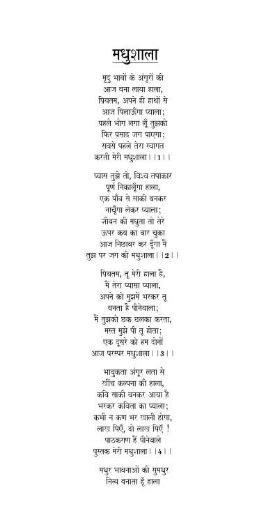 मधुशाला
मृदु भावों के अंगूरों की
आज बना लाया हाला,
प्रियतम, अपने ही हाथों से
आज पिलाऊँगा प्याला;
पहले भोग लगा लूँ तुझको
फिर प्रसाद जग पाएगा;
सबसे पहले तेरा स्वागत
करती मेरी मधुशाला।।1।।
प्यास तुझे तो, विश्व तपाकर
पूर्ण निकालूँगा हाला,
एक पाँव से साकी बनकर
नाचूँगा लेकर प्याला;
जीवन की मधुता तो तेरे
ऊपर कब का वार चुका
आज निछावर कर दूँगा मैं
तुझ पर जग की मधुशाला।।2।।
प्रियतम, तू मेरी हाला है,
मैं तेरा प्यासा प्याला,
अपने को मुझमें भरकर तू
बनता है पीनेवाला;
मैं तुझको छक छलका करता,
मस्त मुझे पी तू होता;
एक दूसरे को हम दोनों
आज परस्पर मधुशाला।।3।।
भावुकता अंगूर लता से
खींच कल्पना की हाला,
कवि साकी बनकर आया है
भरकर कविता का प्याला;
कभी न कण भर खाली होगा,
लाख पिएँ, दो लाख पिएँ !
पाठकगण हैं पीनेवाले
पुस्तक मेरी मधुशाला।।4।।
मधुर भावनाओं की सुमधुर
नित्य बनाता हूँ हाला